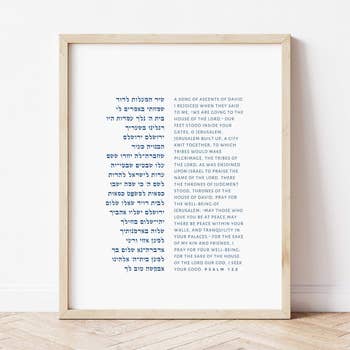 שיר המעלות לדוד
שמחתי באמרים לי
בית ה' נלך עמדות היו
רגלינו בשעריך
ירושלם ירושלם
הבנויה כעיר
שחברה־לה יחדו ששם
עלו שבטים שבטי־יה
עדות לישראל להדות
לשם ה' כי שמה ישבו
כסאות למשפט כסאות
לבית דויד שאלו שלום
ירושלם ישליו אהביך
יהי־שלום בחילך
שלוה בארמנותיך
למען אחי ורעי
אדברה־נא שלום בך
למען בית־ה' אלהינו
אבקשה טוב לך
A SONG OF ASCENTS OF DAVID.
I REJOICED WHEN THEY SAID
TO ME, "WE ARE GOING TO THE
HOUSE OF THE LORD." OUR
FEET STOOD INSIDE YOUR
GATES, O JERUSALEM,
JERUSALEM BUILT UP, A CITY
KNIT TOGETHER, TO WHICH
TRIBES WOULD MAKE
PILGRIMAGE, THE TRIBES OF
THE LORD, AS WAS ENJOINED
UPON ISRAEL TO PRAISE THE
NAME OF THE LORD. THERE
THE THRONES OF JUDGMENT
STOOD, THRONES OF THE
HOUSE OF DAVID. PRAY FOR
THE WELL-BEING OF
JERUSALEM: "MAY THOSE WHO
LOVE YOU BE AT PEACE. MAY
THERE BE PEACE WITHIN YOUR
WALLS, AND TRANQUILITY IN
YOUR PALACES." FOR THE SAKE
OF MY KIN AND FRIENDS, I
PRAY FOR YOUR WELL-BEING;
FOR THE SAKE OF THE HOUSE
OF THE LORD OUR GOD, I SEEK
YOUR GOOD. PSALM 122